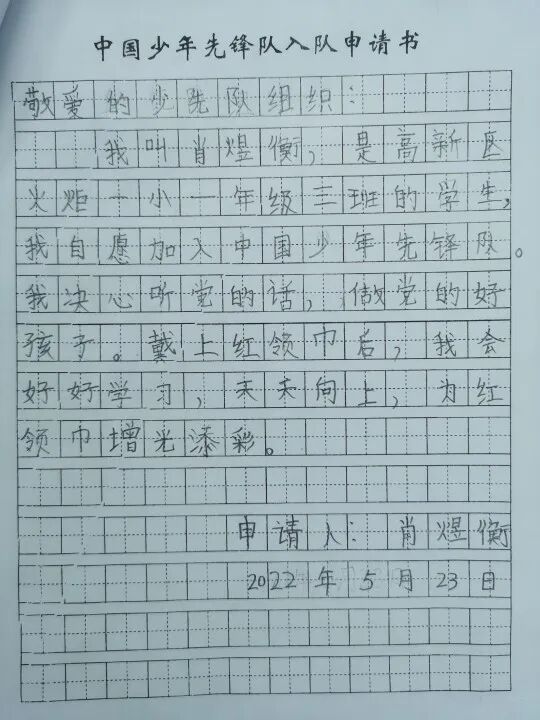 中国少年先锋队入队申请书
敬爱的少先队组织:
我叫肖煜衡,是高新区
火炬一小一年级三班的学生,
我自愿加入中国少年先锋队。
我决心听党的话,做党的好
孩子。戴上红领巾后,我会
好好学习,天天向上,为红
领巾增光添彩。
申请人:肖煜衡
2022年5月23日